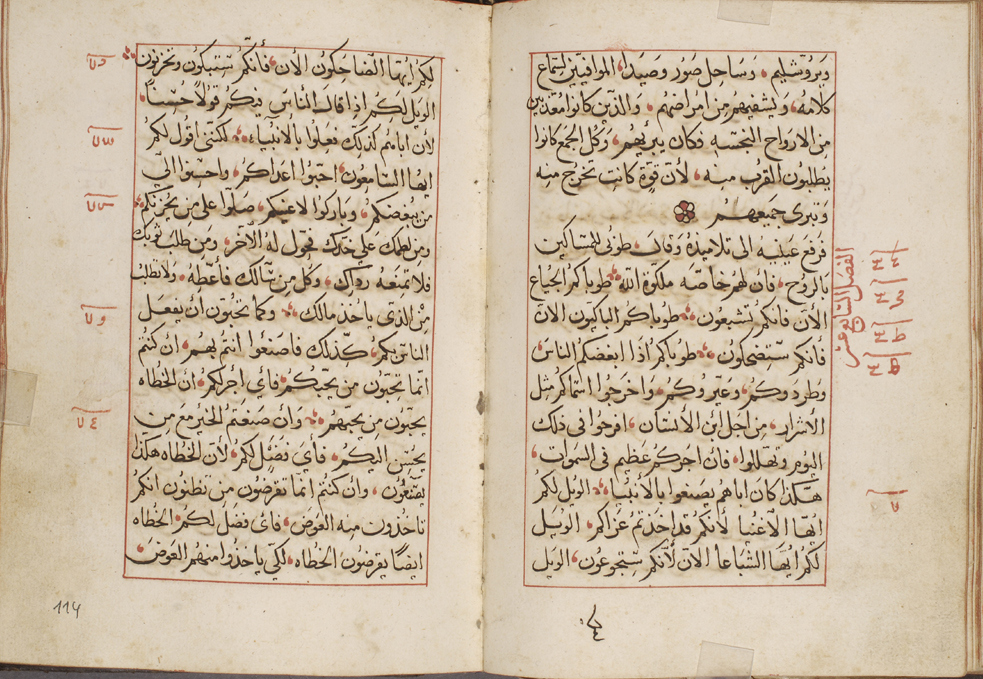 وبروشليم، وساحل صور وصيدا، الموافيين لستماع
كلامه، ويشفيهم من امراضهم، والذين كانوا معذبين
من الارواح النجسه وكان يبريهم، وكل الجمع كانوا
يطلبون القرب منه، لأن قوة كانت تخرج منه
وتبرى جميعهم
فرفع عينيه الى تلاميذه وقال، طوبى للمساكين
بالروح، فان لهم خاصه ملكوة الله طوباكم الجياع
الآن فانكم تشبعون طوباكم الباكون الان
فأنكم ستضحكون طوباكم أذا ابغضكم الناس
وطردوكم، وعيروكم، واخرجوا اسماكم مثل
الاشرار، من اجل ابن الأنسان، افرحوا في ذلك
اليوم وتهللوا، فان اجركم عظيم في السموات،
هكذا كان اباهم يصنعوا بالأنبيا الويل لكم
ايها الأغنيا لأنكم قد اخذتم عزاكم، الويل
لكم أيها الشباعا الآن لأنكم ستجوعون، الويل
الفصل السابع عشر
لكم ايها الضاحكون الأن، فأنكم ستبكون وتحزنون
الويل لكم اذا قال الناس فيكم قولاً حسناً،
لأن اباهم كذلك فعلوا بالأنبياء لكنني اقول لكم
ايها السامعون، احبوا اعداكم، واحسنوا الى
من يبغضكم، وباركوا لاعنيكم، صلوا على من يحزنكم
ومن لطمك على خدك فحول له الآخر، ومن طلب ثوبك
فلا تمنعه رداك، وكل من سألك فأعطه، ولا تطلب
من الذي ياخذ مالك وكما تحبون أن يفعل
الناس بكم، كذلك فاصنعوا انتم بهم، ان كنتم
انما تحبون من يحبكم، فاي أجر لكم، ان الخطاه
يحبون من يحبهم وان صنعتم الخير مع من
يحسن اليكم، فأي فضل لكم، لأن الخطاه هكذا
يصنعون، وان كنتم انما تقرضون من تظنون انكم
تاخذون منه العوض، فاي فضل لكم، الخطاه
ايضاً يقرضون الخطاه، لكي ياخذوا منهم العوض،
114